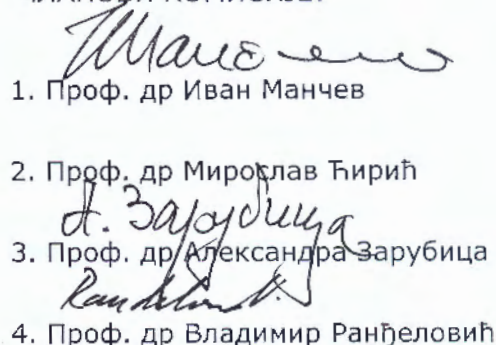 1. Проф. др Иван Манчев
2. Проф. др Мирослав Ћирић
А. Зарубица
3. Проф. др Александра Зарубица
4. Проф. др Владимир Ранђеловић